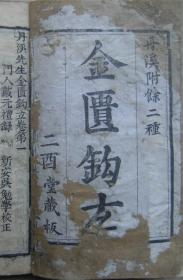 丹溪附餘二種
金匱鈎玄
二酉堂藏板
丹溪先生金匱鈎玄卷第一
門人戴元禮錄
新安吳勉學校正